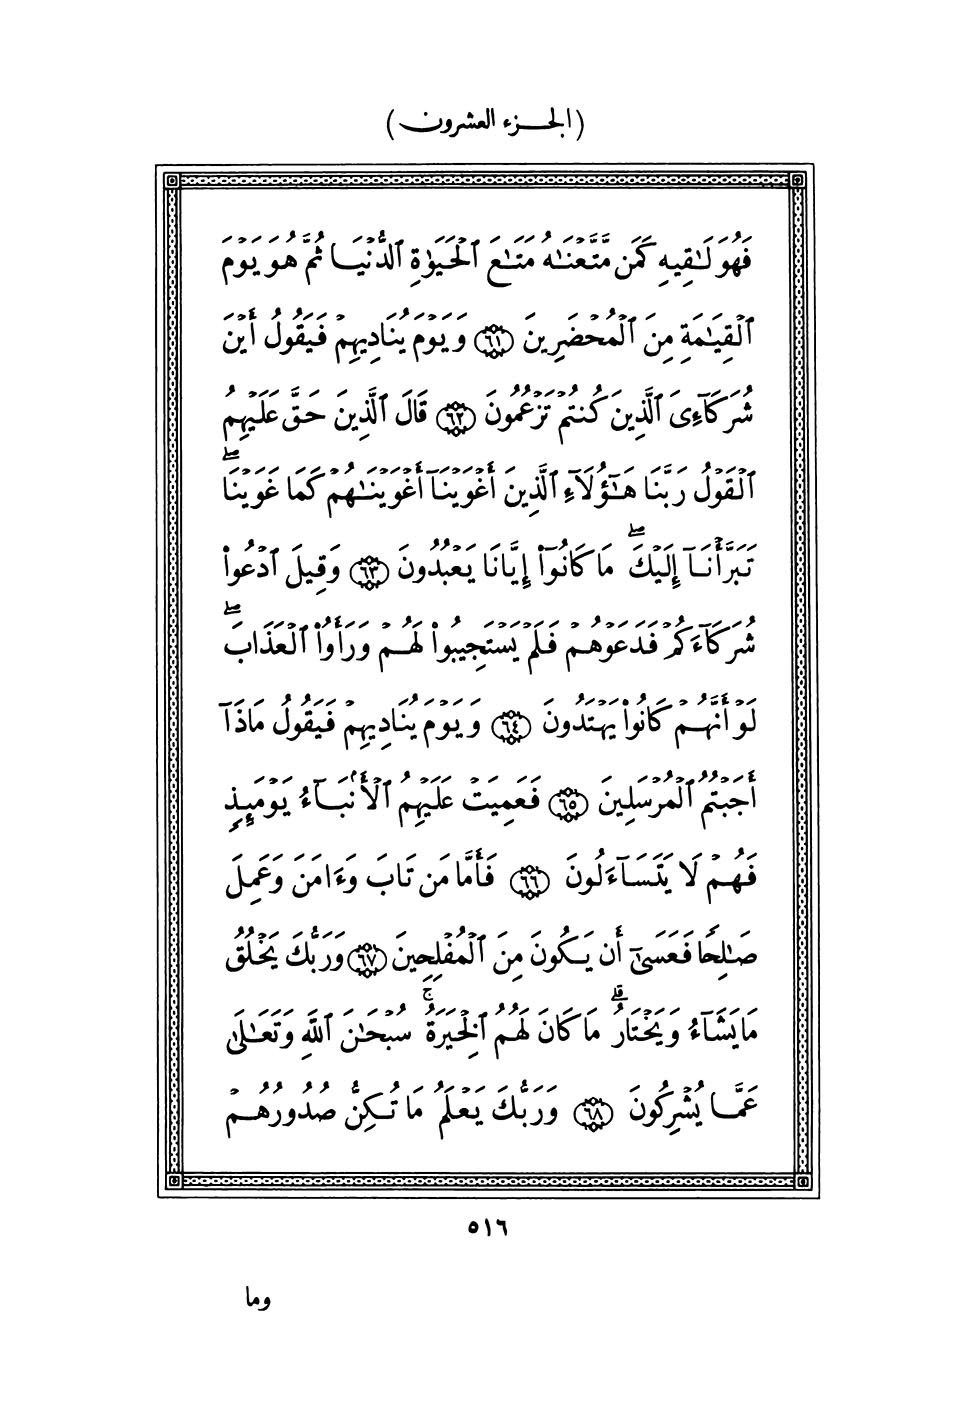 (الجزء العشرون)
فَهُوَ لَٰقِيهِ كَمَن مَّتَّعْنَٰهُ مَتَٰعَ ٱلْحَيَوٰةِ ٱلدُّنْيَا ثُمَّ هُوَ يَوْمَ
ٱلْقِيَٰمَةِ مِنَ ٱلْمُحْضَرِينَ ٦١ وَيَوْمَ يُنَادِيهِمْ فَيَقُولُ أَيْنَ
شُرَكَآءِىَ ٱلَّذِينَ كُنتُمْ تَزْعُمُونَ ٦٢ قَالَ ٱلَّذِينَ حَقَّ عَلَيْهِمُ
ٱلْقَوْلُ رَبَّنَا هَٰٓؤُلَآءِ ٱلَّذِينَ أَغْوَيْنَآ أَغْوَيْنَٰهُمْ كَمَا غَوَيْنَاۖ
تَبَرَّأْنَآ إِلَيْكَۖ مَا كَانُوٓا۟ إِيَّانَا يَعْبُدُونَ ٦٣ وَقِيلَ ٱدْعُوا۟
شُرَكَآءَكُمْ فَدَعَوْهُمْ فَلَمْ يَسْتَجِيبُوا۟ لَهُمْ وَرَأَوُا۟ ٱلْعَذَابَۖ
لَوْ أَنَّهُمْ كَانُوا۟ يَهْتَدُونَ ٦٤ وَيَوْمَ يُنَادِيهِمْ فَيَقُولُ مَاذَآ
أَجَبْتُمُ ٱلْمُرْسَلِينَ ٦٥ فَعَمِيَتْ عَلَيْهِمُ ٱلْأَنۢبَآءُ يَوْمَئِذٍ
فَهُمْ لَا يَتَسَآءَلُونَ ٦٦ فَأَمَّا مَن تَابَ وَءَامَنَ وَعَمِلَ
صَٰلِحًا فَعَسَىٰٓ أَن يَكُونَ مِنَ ٱلْمُفْلِحِينَ ٦٧ وَرَبُّكَ يَخْلُقُ
مَا يَشَآءُ وَيَخْتَارُۗ مَا كَانَ لَهُمُ ٱلْخِيَرَةُۚ سُبْحَٰنَ ٱللَّهِ وَتَعَٰلَىٰ
عَمَّا يُشْرِكُونَ ٦٨ وَرَبُّكَ يَعْلَمُ مَا تُكِنُّ صُدُورُهُمْ
٥١٦
وما